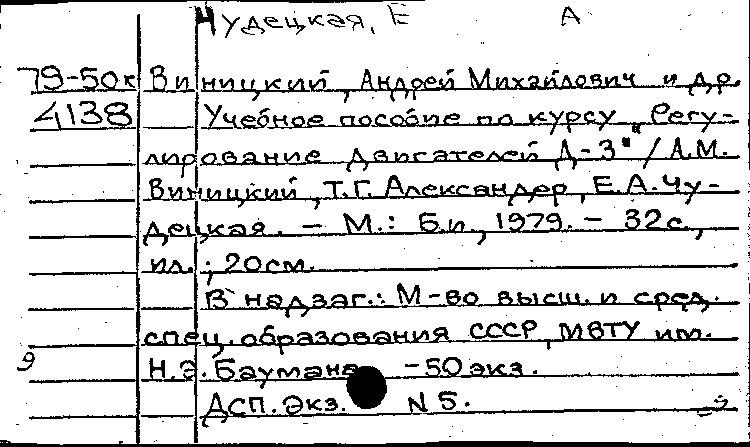 Чудецкая, Е А
79-50к Виницкий, Андрей Михайлович и др.
4138 Учебное пособие по курсу „Регу-
лирование двигателей Д-3" / А.М.
Виницкий, Т.Г. Александер, Е.А. Чу-
децкая. - М.: Б.и, 1979. - 32с.,
ил.; 20см.
В надзаг.: М-во высш. и сред.
спец. образования СССР, МВТУ им.
Н.Э. Баумана -50 экз.
ДСП. Экз. N 5.